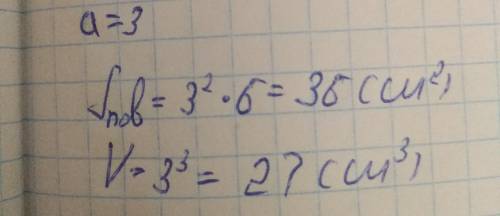 a=3
Sпов = 3² · 6 = 36 (см²)
V = 3³ = 27 (см³)